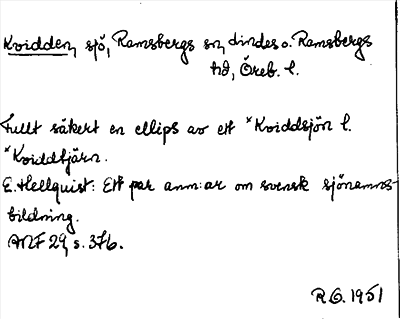 Kvidden, sjö, Ramsbergs sn, Lindes o. Ramsbergs
hd, Öreb. l.
Fullt säkert en ellips av ett *Kviddsjön l.
*Kviddtjärn.
E. Hellquist: Ett par anm:ar om svensk sjönamns-
bildning.
ANF 29, s. 376.
R.G. 1951